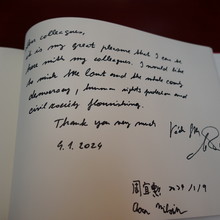 Dear colleagues,
it is my great pleasure that I can be
here with my colleagues. I would like
to wish the and the whole county
democracy, human rights protection and
civil society flourishing.
Thank you very much
9.1.2024
周宜勲 2024/1/9